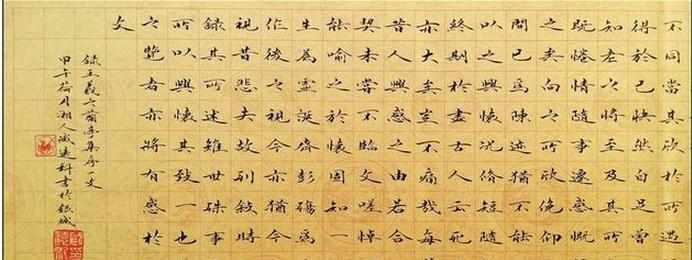 不同當其欣於所遇
得於己快然自足曾
知老之將至及其所
既惓情隨事遷感慨
之矣向之所欣俛仰
間已為陳迹猶不能
以之興懷況脩短隨
終期於盡古人云死
亦大矣豈不痛哉每
昔人興感之由若合
契未嘗不臨文嗟悼
能喻之於懷固知一
生為虛誕齊彭殤為
作後之視今亦猶今
視昔悲夫故列敘時
錄其所述雖世殊事
所以興懷其致一也
之覽者亦將有感於
文
錄王羲之蘭亭集序一文
甲午荷月湘人